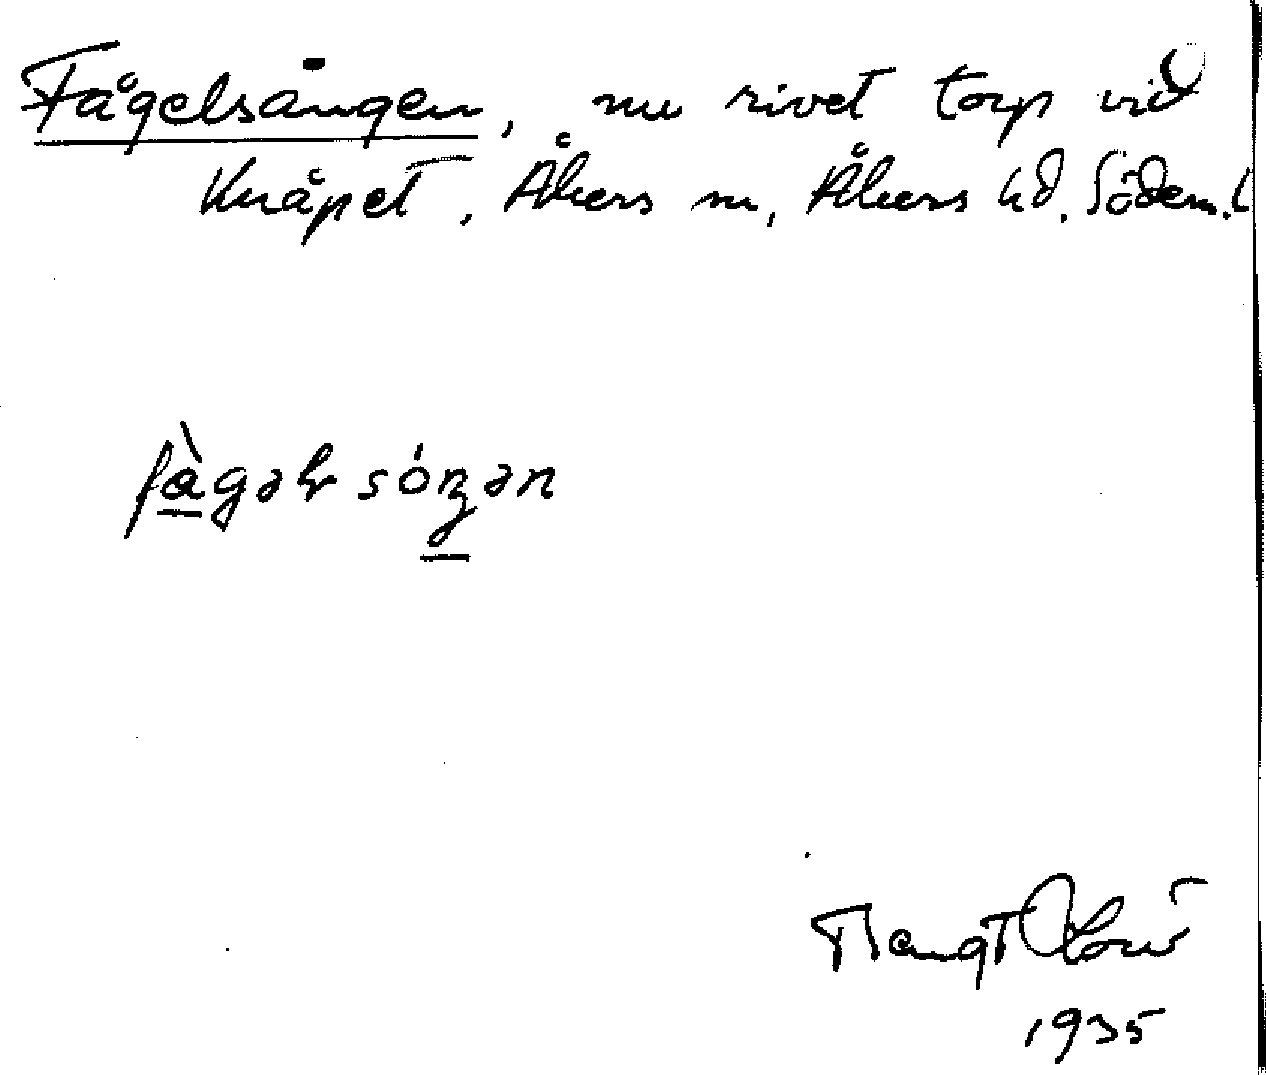 Fågelsången, nu rivet torp vid
Knåpet, Åkers sn, Åkers hd. Söderm. l
fàgəls óŋən
1935